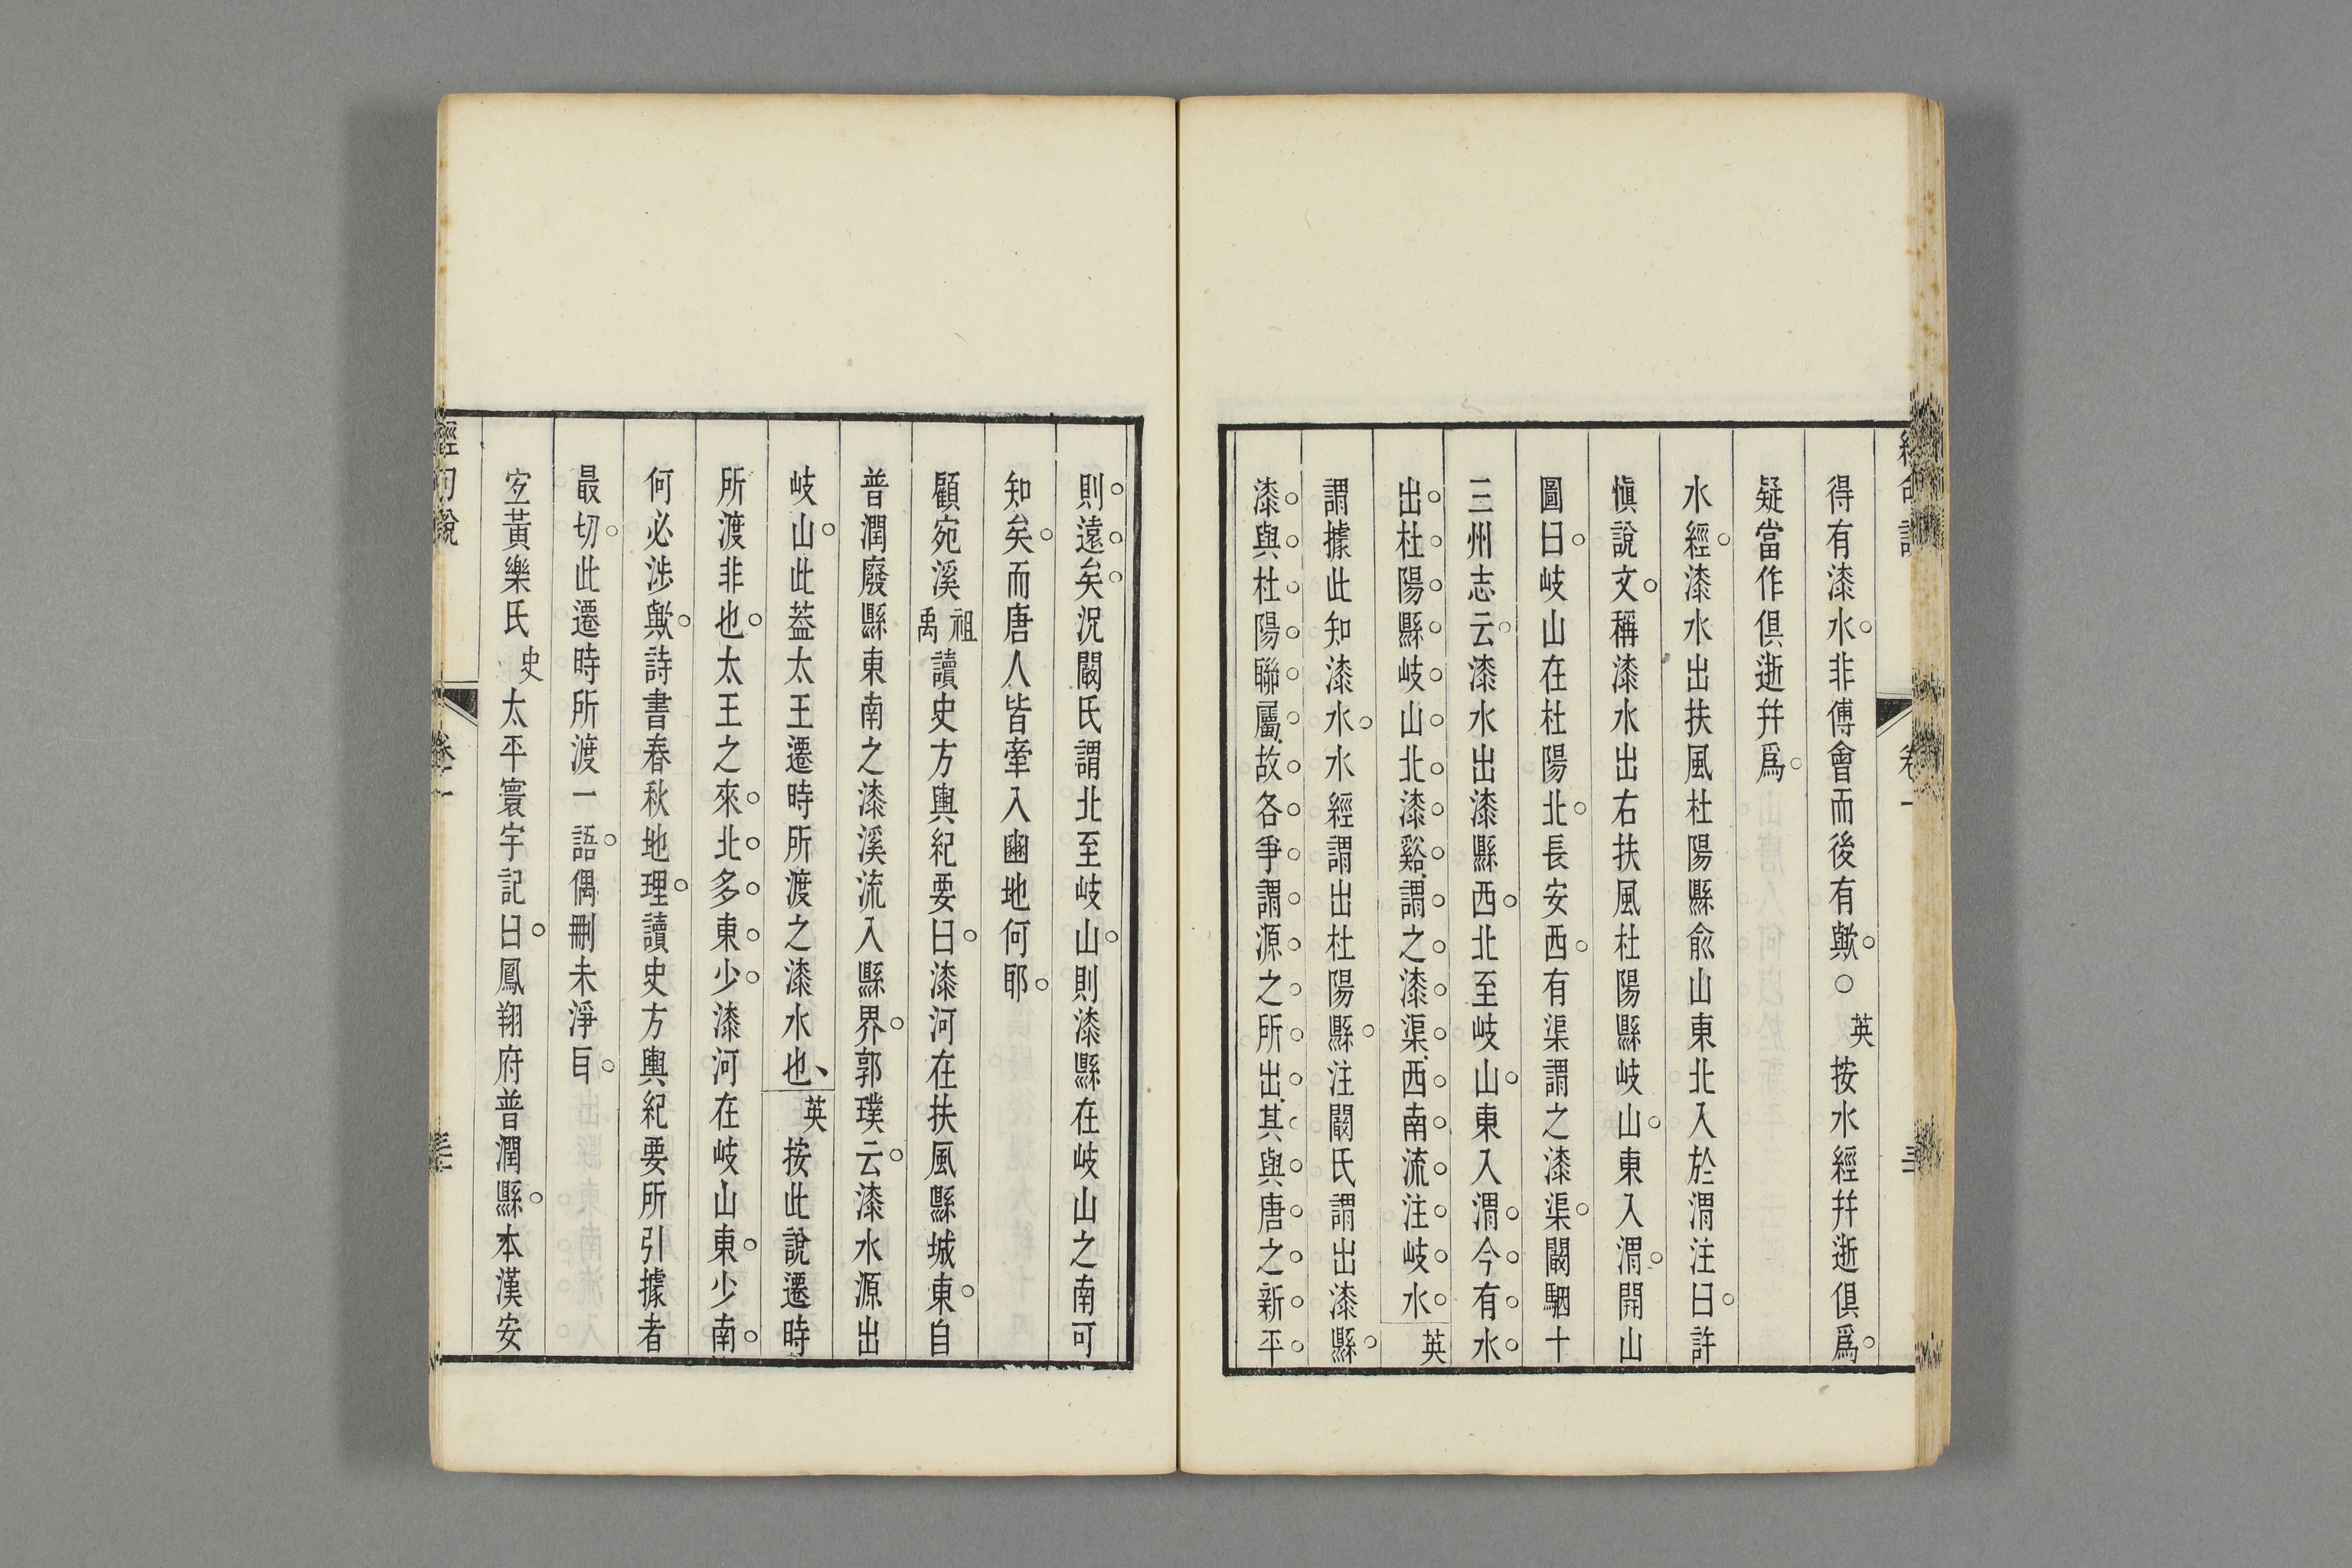 得有漆水非傅會而後有歟○英按水經幷逝俱爲
疑當作俱逝幷爲
水經漆水出扶風杜陽縣俞山東北入於渭注曰許
愼說文稱漆水出右扶風杜陽縣岐山東入渭開山
圖曰岐山在杜陽北長安西有渠謂之漆渠闞駰十
三州志云漆水出漆縣西北至岐山東入渭今有水
出杜陽縣岐山北漆谿謂之漆渠西南流注岐水英
謂據此知漆水水經謂出杜陽縣注闞氏謂出漆縣
漆與杜陽聯屬故各爭謂源之所出其與唐之新平
則遠矣況闞氏謂北至岐山則漆縣在岐山之南可
知矣而唐人皆牽入豳地何耶
顧宛溪祖禹讀史方輿紀要曰漆河在扶風縣城東自
普潤廢縣東南之漆溪流入縣界郭璞云漆水源出
岐山此葢太王遷時所渡之漆水也英按此說遷時
所渡非也太王之來北多東少漆河在岐山東少南
何必涉歟詩書春秋地理讀史方輿紀要所引據者
最切此遷時所渡一語偶刪未淨㠯
宜黃樂氏史太平寰宇記曰鳳翔府普潤縣本漢安
經句說
卷十一